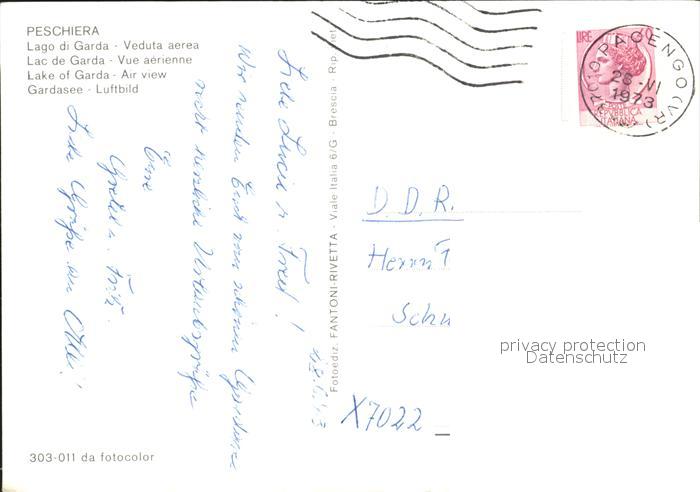 PESCHIERA
Lago di Garda - Veduta aerea
Lac de Garda - Vue aérienne
Lake of Garda - Air view
Gardasee - Luftbild
Liebe Lucie u. Fred!
Wir senden Euch vom schönen Gardasee
recht herzliche Urlaubsgrüße
Eure
Gretel u. Fritz.
Liebe Grüße an Otti!
Fotoediz. FANTONI-RIVETTA - Viale Italia 6/G - Brescia - Rip. viet.
LIRE
REPUBBLICA
ITALIANA
37010 PACENGO (VR)
26-VI
1973
D.D.R.
Herrn T
Schu
X7022
privacy protection
Datenschutz
303-011 da fotocolor